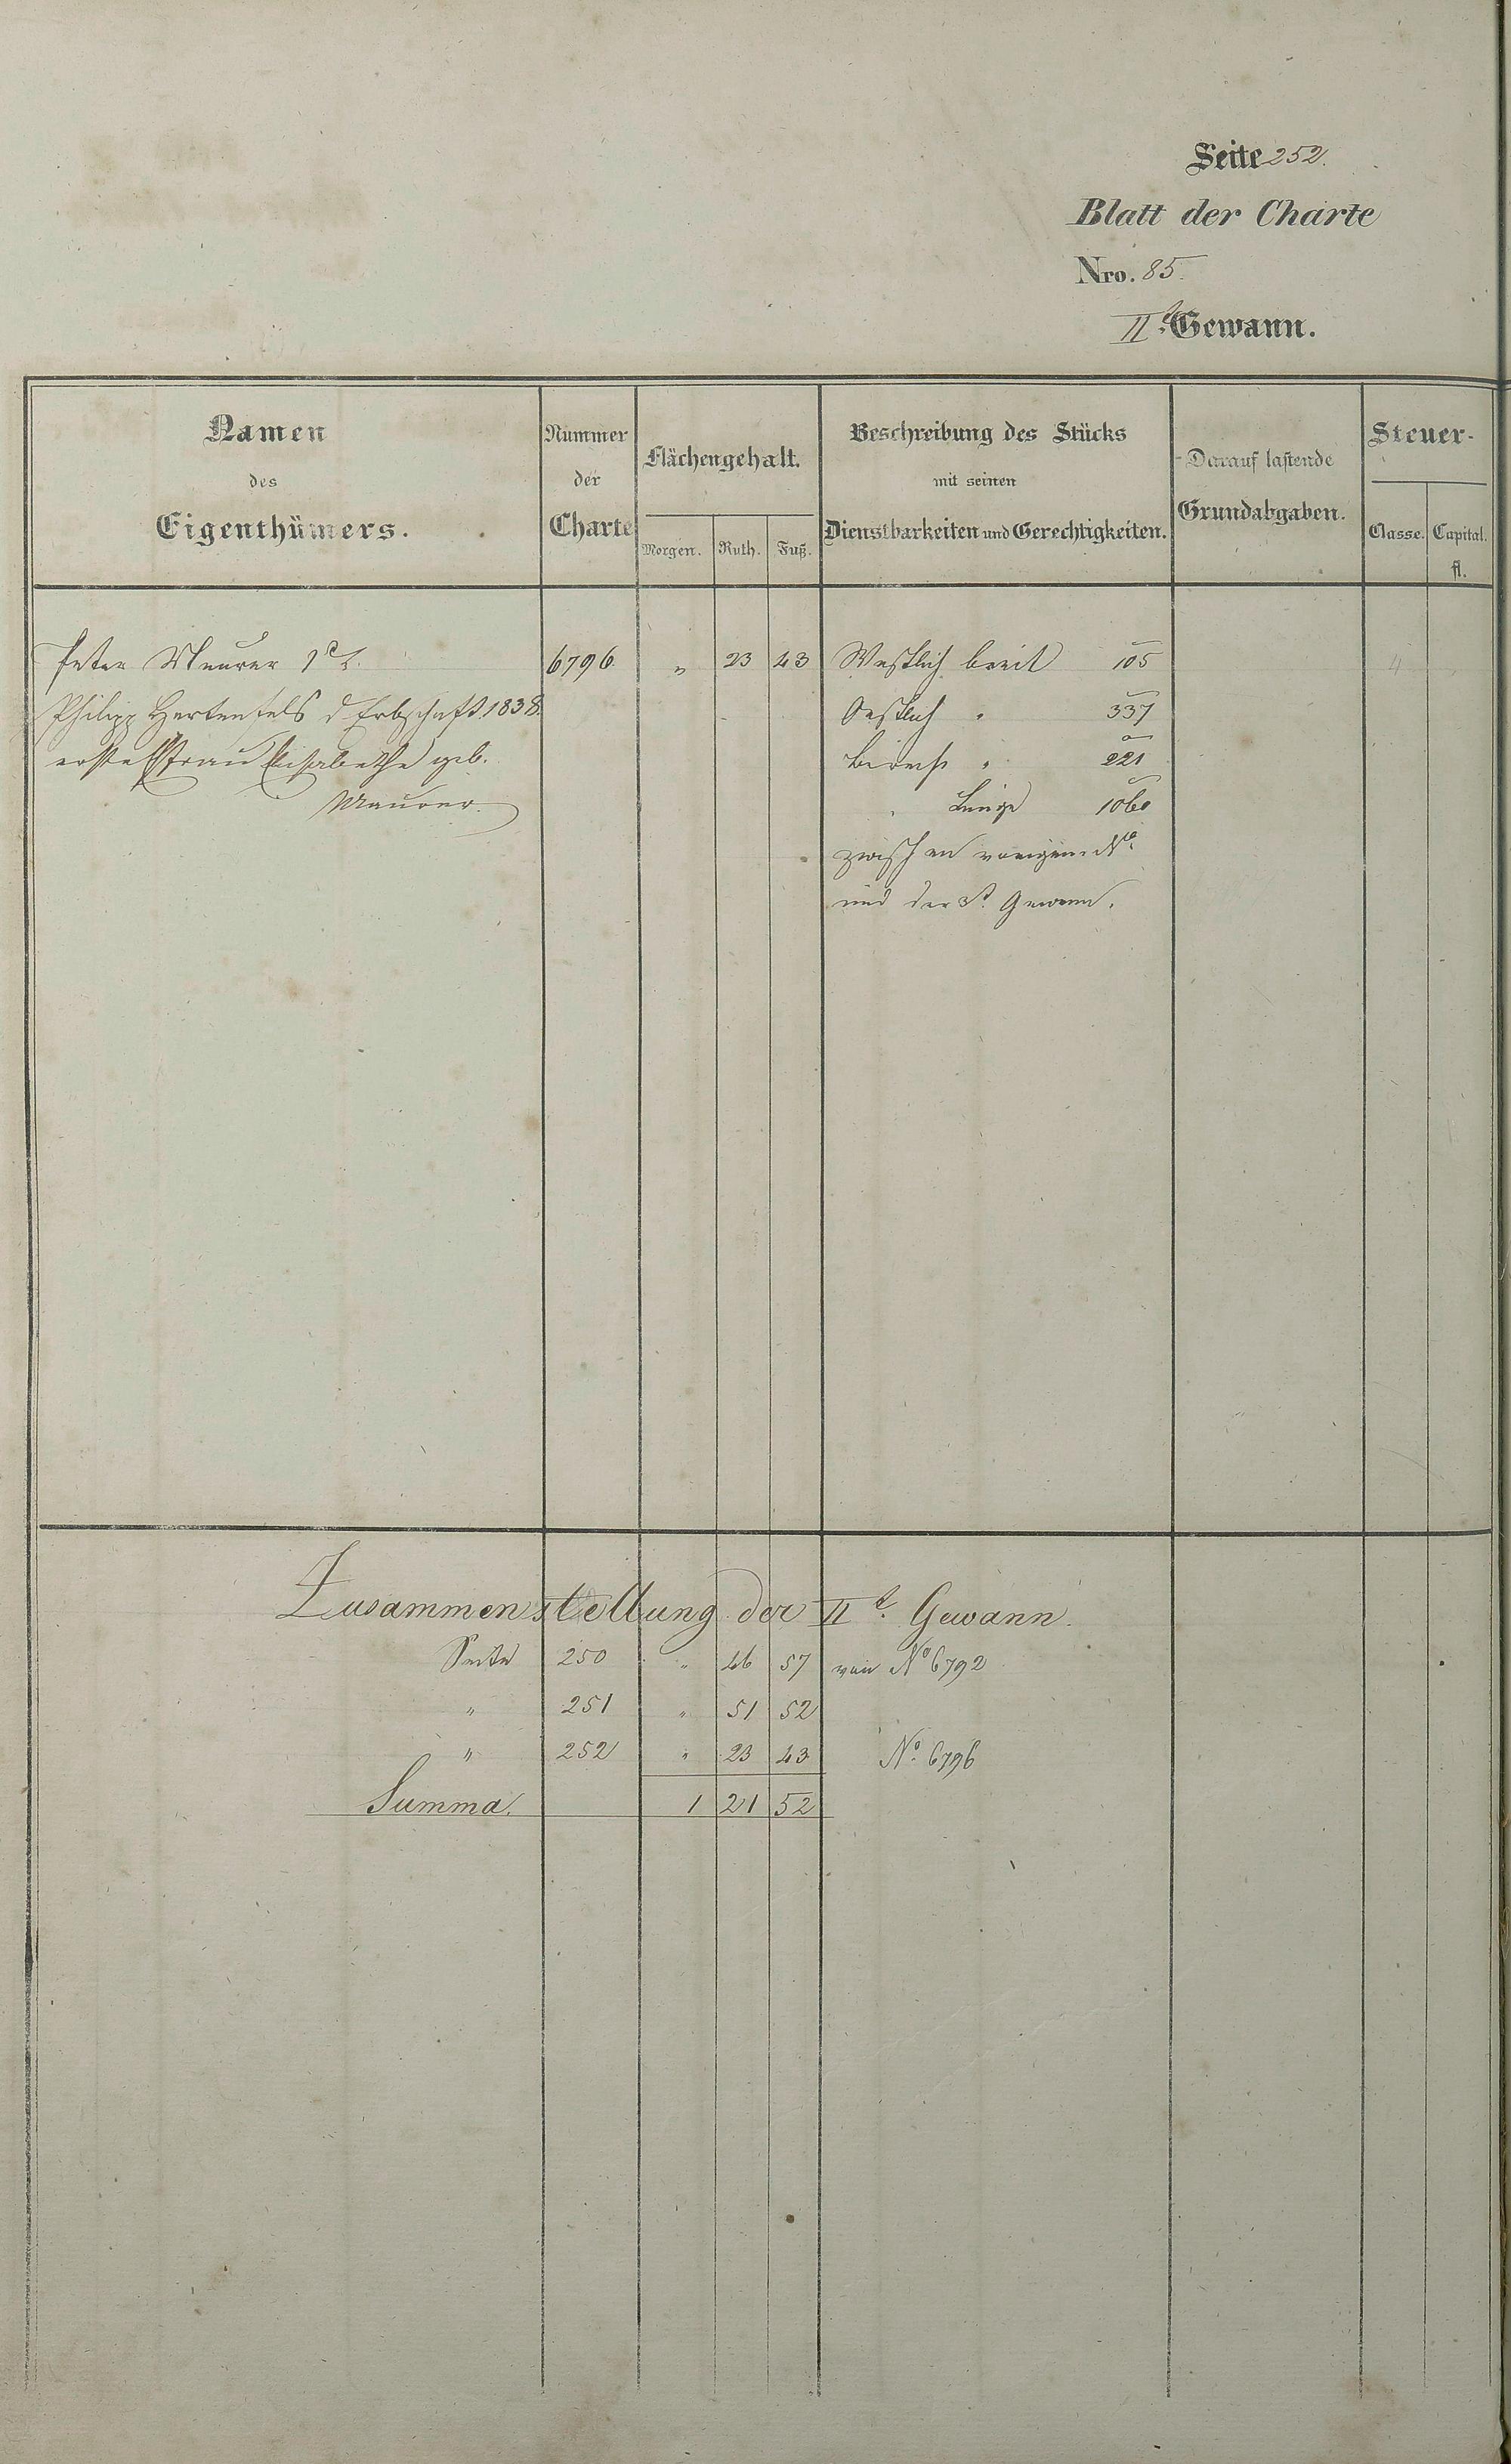 Seite 252.
Blatt der Charte
Nro. 85.
IIt. Gewann.
Namen des Eigenthümers.
Nummer der Charte
Flächengehalt.
Morgen. Ruth. Fuß.
Beschreibung des Stücks mit seinen Dienstbarkeiten und Gerechtigkeiten.
Darauf lastende Grundabgaben.
Steuer-
Classe. Capital. fl.
Peter Maurer 6796 „ 23 43 Westlich breit 105 4
Philipp Hertenfels d Erbschaft 1838. Oestlich „ 337
erste Ehefrau Elisabetha geb. „ 221
Maurer. „ Länge 1060
zwischen voriger No.
und der 3t. Gewann.
Zusammenstellung der IIt. Gewann.
Seite 250 „ 46 57 von No 6792
„ 251 „ 51 52
„ 252 „ 23 43 No. 6796
Summa. 1 21 52